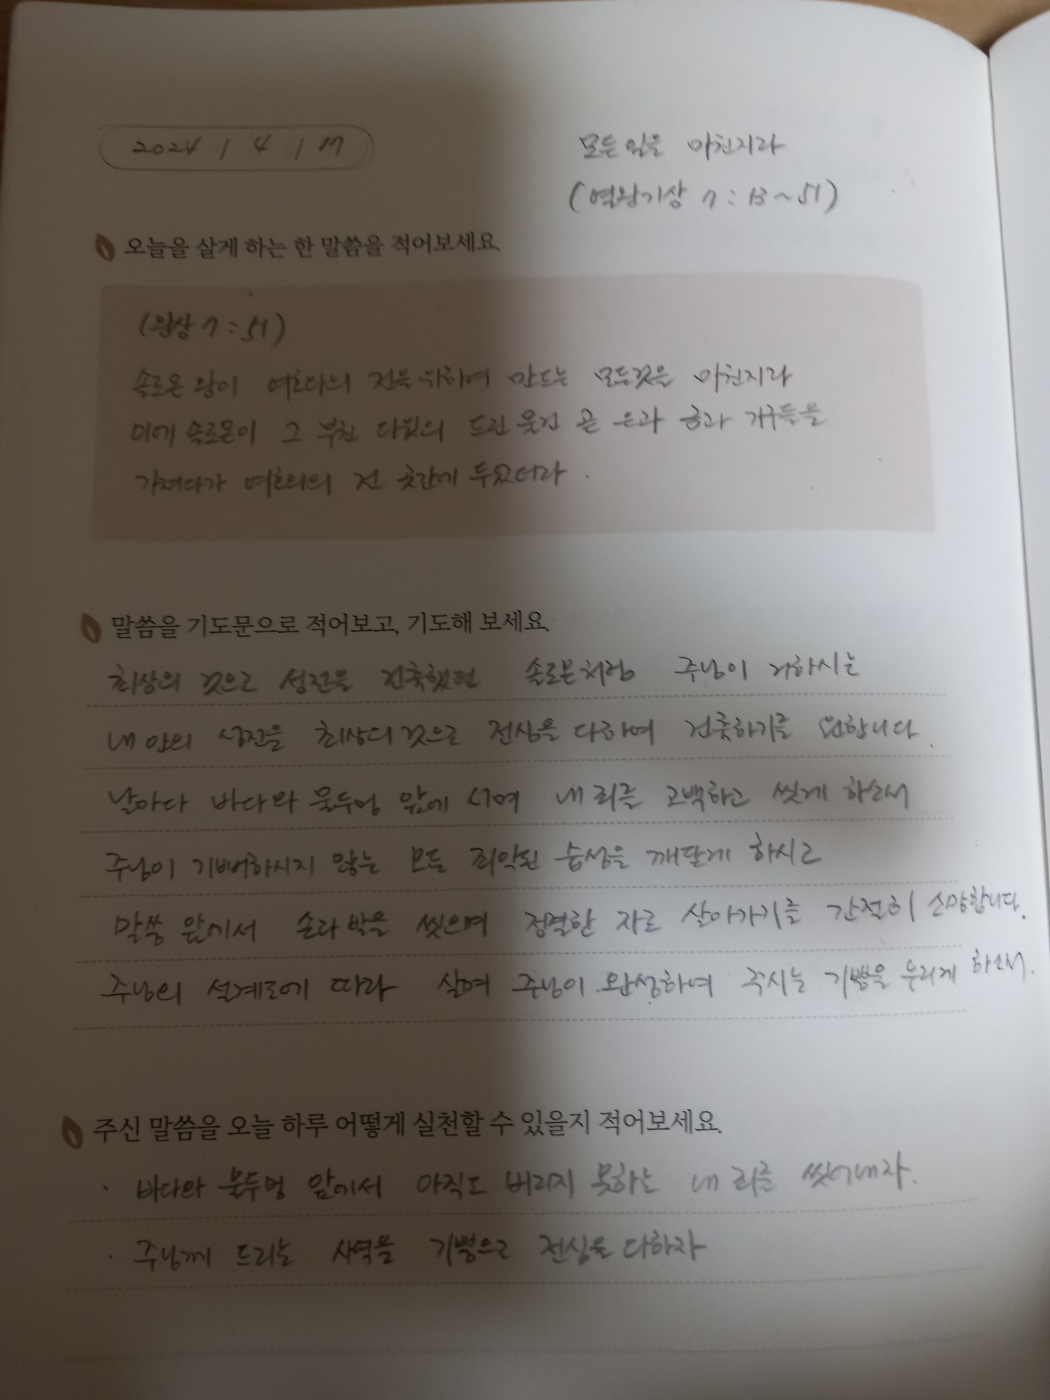 2024 / 4 / 17
모든 일을 마친지라
(열왕기상 7 : 13 ~ 51)
오늘을 살게 하는 한 말씀을 적어보세요.
(왕상 7 : 51)
솔로몬 왕이 여호와의 전을 위하여 만드는 모든것을 마친지라
이에 솔로몬이 그 부친 다윗의 드린 물건 곧 은과 금과 기구들을
가져다가 여호와의 전 곳간에 두었더라.
말씀을 기도문으로 적어보고, 기도해 보세요.
최상의 것으로 성전을 건축했던 솔로몬처럼 주님이 거하시는
내 안의 성전을 최상의 것으로 전심을 다하여 건축하기를 원합니다.
날마다 바다와 물두멍 앞에 서며 내 죄를 고백하고 씻게 하소서
주님이 기뻐하시지 않는 모든 죄악된 습성을 깨닫게 하시고
말씀 앞에서 손과 발을 씻으며 정결한 자로 살아가기를 간절히 소망합니다.
주님의 설계도에 따라 살며 주님이 완성하여 주시는 기쁨을 누리게 하소서.
주신 말씀을 오늘 하루 어떻게 실천할 수 있을지 적어보세요.
· 바다와 물두멍 앞에서 아직도 버리지 못하는 내 죄를 씻어내자.
· 주님께 드리는 사역을 기쁨으로 전심을 다하자